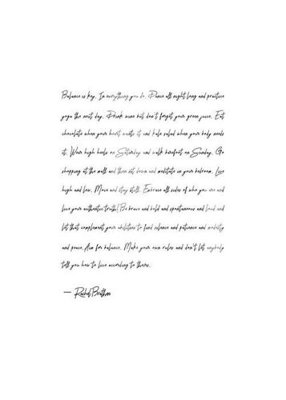 Balance is key. In everything you do. Dance all night long and practice
yoga the next day. Drink wine but don't forget your green juice. Eat
chocolate when your heart wants it and kale salad when your body needs
it. Wear high heels on Saturday and walk barefoot on Sunday. Go
shopping at the mall and then sit down and meditate in your bedroom. Live
high and low. Move and stay still. Embrace all sides of who you are and
live your authentic truth! Be brave and bold and spontaneous and loud and
let that complement your abilities to find silence and patience and
and peace. Aim for balance. Make your own rules and don't let anybody
tell you how to live according to theirs.
— Rachel Brathen